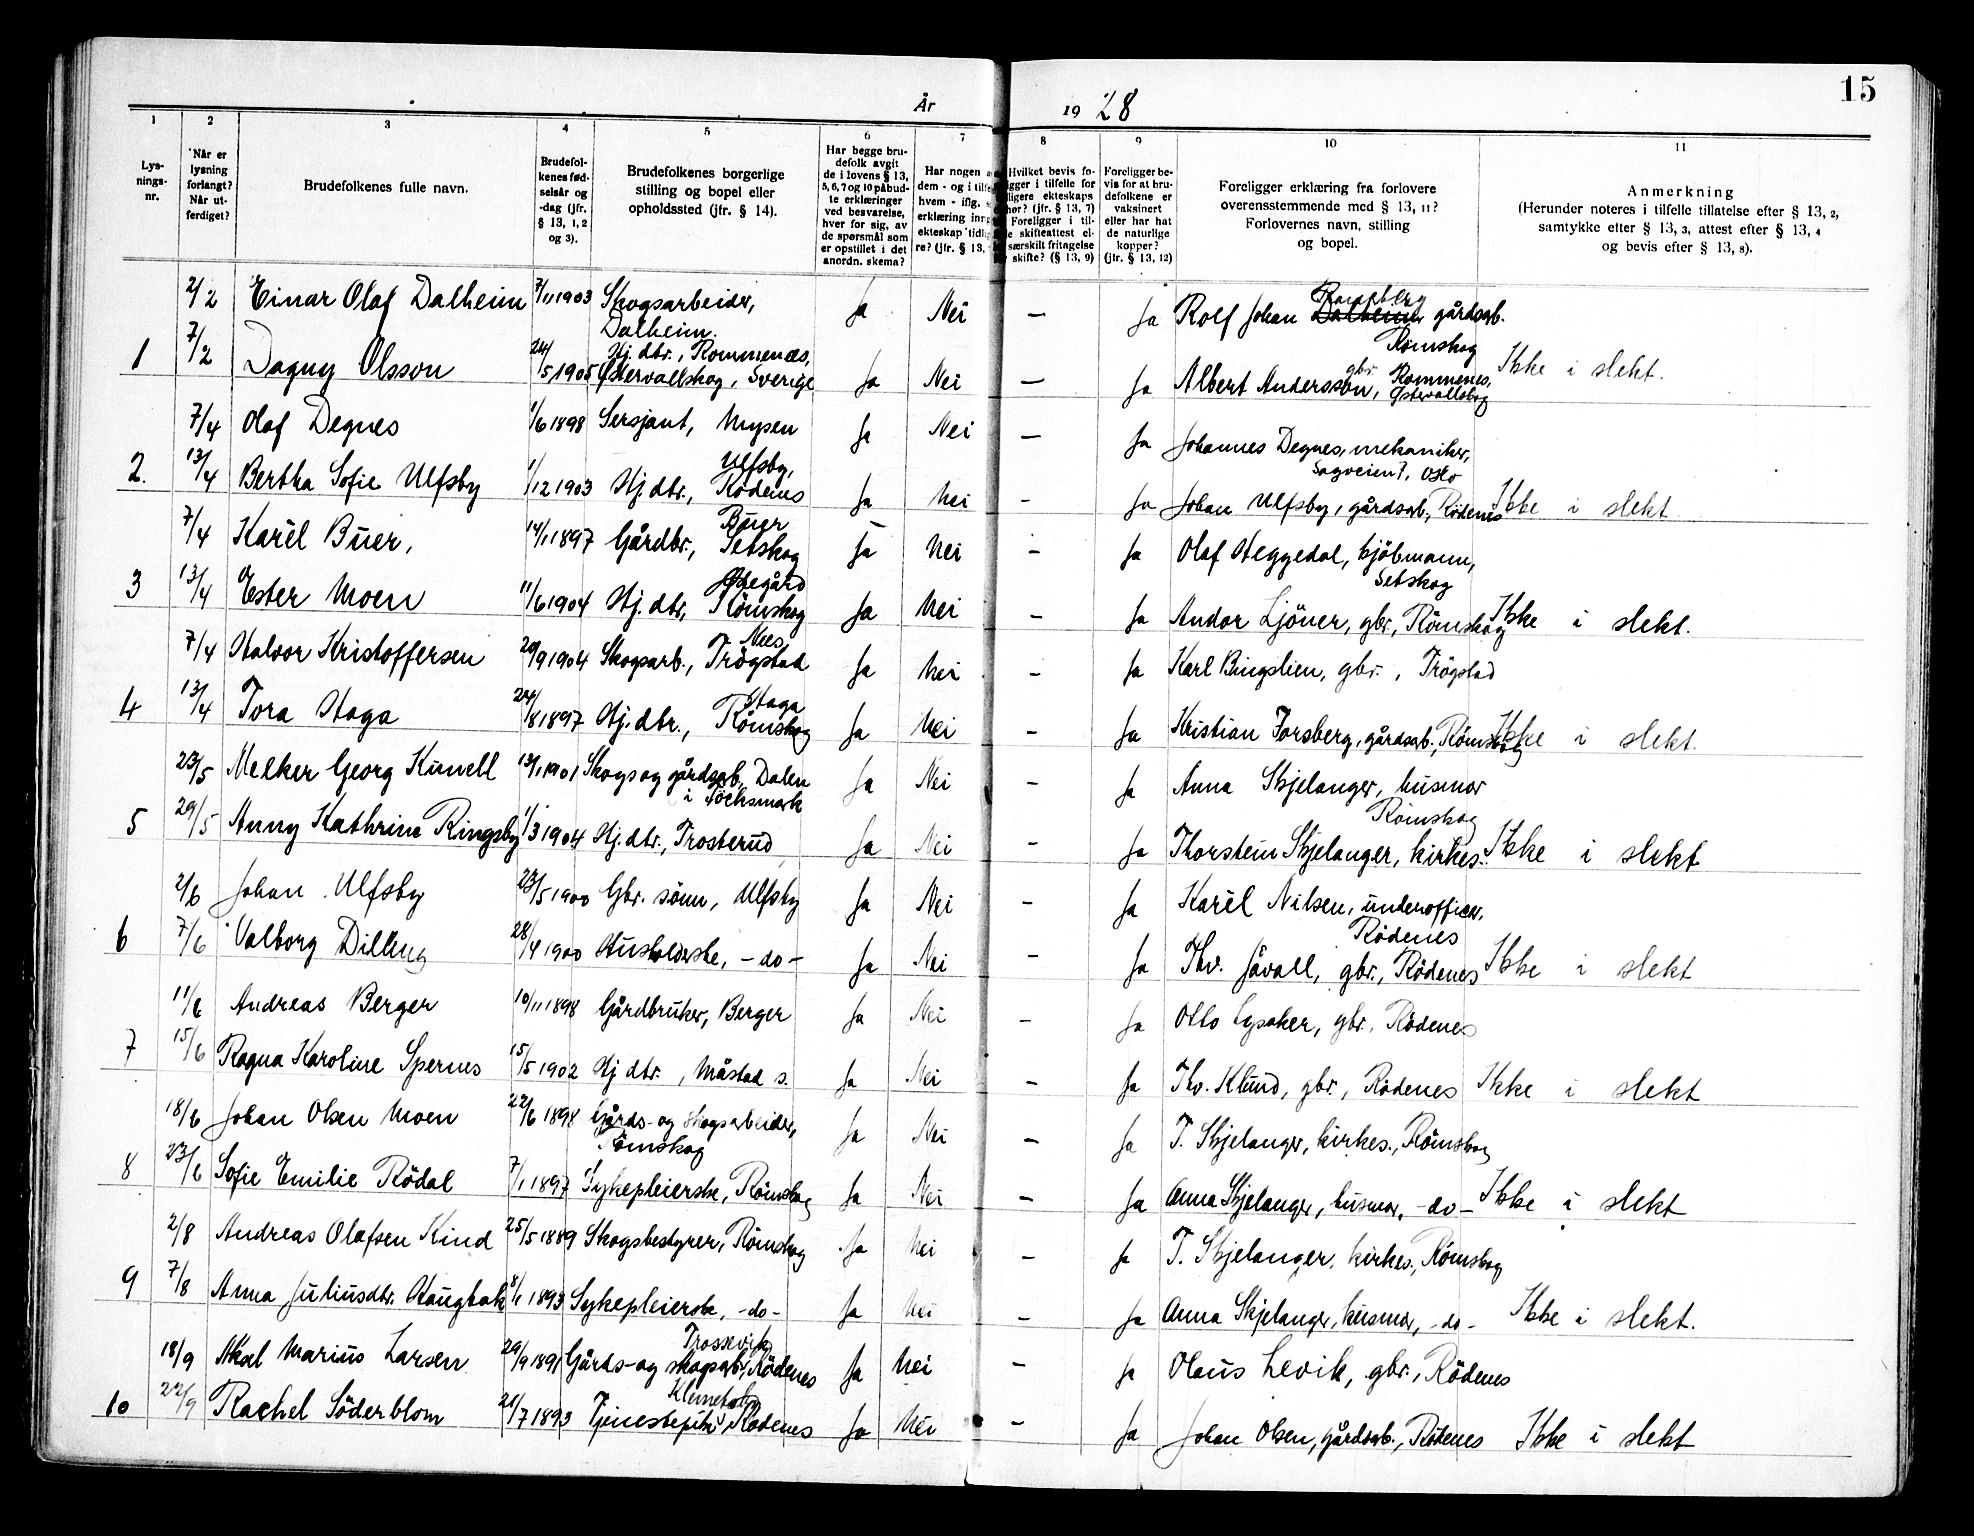 15
År 1928
1 2 3 4 5 6 7 8 9 10 11
Lys-
nings-
nr.
Når er
lysning
forlangt?
Når ut-
ferdiget?
Brudefolkenes fulle navn.
Brudefol-
kenes fød-
selsår og
-dag (jfr.
§ 13, 1, 2
og 3).
Brudefolkenes borgerlige
stilling og bopel eller
opholdssted (jfr. § 14).
Har begge bru-
defolk avgit
de i lovens § 13,
5, 6, 7 og 10 påbud-
te erklæringer
ved besvarelse,
hver for sig, av
de spørsmål som
er opstillet i det
anordn. skema?
Har nogen a
dem - og i tilfe
hvem - iflg. s
erklæring inng
ekteskap tidlig
re? (jfr. § 13,
Hvilket bevis fo-
ligger i tilfelle for
ligere ekteskaps
hør? (jfr. § 13, 7)
Foreligger i til-
e skifteattest el-
særskilt fritagelse
skifte? (§ 13, 9)
Foreligger be-
vis for at bru-
defolkene er
vaksinert
eller har hat
de naturlige
kopper?
(jfr. § 13, 12)
Foreligger erklæring fra forlovere
overensstemmende med § 13, 11?
Forlovernes navn, stilling
og bopel.
Anmerkning
(Herunder noteres i tilfelle tillatelse efter § 13, 2,
samtykke efter § 13, 3, attest efter § 13, 4
og bevis efter § 13, 8).
2/2 Einar Olaf Dalheim 7/11 1903 Skogsarbeider, Dalheim. Ja Nei — Ja Rolf Johan Dalheim gårdsarb. Rømskog
1 7/2 Dagny Olsson 24/5 1905 Hj. dtr., Rommenes, Østervallskog, Sverige Ja Nei — Ja Albert Andersson, gbr. Rommenes, Østervallskog Ikke i slekt.
7/4 Olaf Degnes 1/6 1898 Sersjant, Mysen Ja Nei — Ja Johannes Degnes, mekaniker, Oslo
2. 13/4 Bertha Sofie Ulfsby 1/12 1903 Hj. dtr., Ulfsby, Rödenes Ja Nei — Ja Johan Ulfsby, gårdsarb., Rödenes Ikke i slekt
7/4 Karel Buer, 14/1 1897 Gårdbr., Buer Setskog Ja Nei — Ja Olaf Heggedal, kjöbmann, Setskog
3 13/4 Ester Moen 11/6 1904 Hj. dtr., Römskog Ja Nei — Ja Andor Ljöner, gbr., Römskog Ikke i slekt.
7/4 Halvor Kristoffersen 20/9 1904 Skogsarb., Nes, Trögstad Ja Nei — Ja Karl Bingslien, gbr., Trögstad
4 13/4 Tora Haga 24/8 1897 Hj. dtr., Haga Römskog Ja Nei — Ja Kristian Forsberg, gårdsarb., Römskog Ikke i slekt.
23/5 Melker Georg Kunell 13/1 1901 Skogs og gårdsarb., Dalen i Töcksmark Ja Nei — Ja Anna Skjelanger, husmor Römskog
5 29/5 Anny Kathrine Ringsby 1/3 1904 Hj. dtr., Trosterud Ja Nei — Ja Thorstein Skjelanger, kirkes.. Ikke i slekt
2/6 Johan Ulfsby 23/5 1900 Gbr. sönn, Ulfsby Ja Nei — Ja Karel Nilsen, underofficer, Rödenes
6 7/6 Valborg Dilling 28/4 1900 Husholderske, -do- Ja Nei — Ja Thv. Jåvall, gbr., Rödenes Ikke i slekt
11/6 Andreas Berger 10/11 1898 Gårdbruker, Berger Ja Nei — Ja Otto Lysaker, gbr., Rödenes
7 15/6 Ragna Karoline Spernes 15/5 1902 Hj dtr., Måstad s. Ja Nei — Ja Thv. Klund, gbr., Rödenes Ikke i slekt
18/6 Johan Olsen Moen 22/6 1898 Gårds- og skogsarbeider, Römskog Ja Nei — Ja T. Skjelanger, kirkes., Römskog
8 23/6 Sofie Emilie Rödal 7/1 1897 Sykepleierske, Römskog Ja Nei — Ja Anna Skjelanger, husmor, -do- Ikke i slekt
2/8 Andreas Olafsen Kind 25/5 1889 Skogsbestyrer, Römskog Ja Nei — Ja T. Skjelanger, kirkes., Römskog
9 7/8 Anna Juliusdtr. Haugbak 8/1 1893 Sykepleierske, -do- Ja Nei — Ja Anna Skjelanger, husmor, -do- Ikke i slekt.
18/9 Aksel Marius Larsen 29/9 1891 Gårds- og skogsarb., Trossevik Rödenes Ja Nei — Ja Olaus Levik, gbr., Rödenes
10 22/9 Rachel Söderblom 21/7 1893 Tjenestepike, Rödenes Ja Nei — Ja Johan Olsen, gårdsarb., Rödenes Ikke i slekt